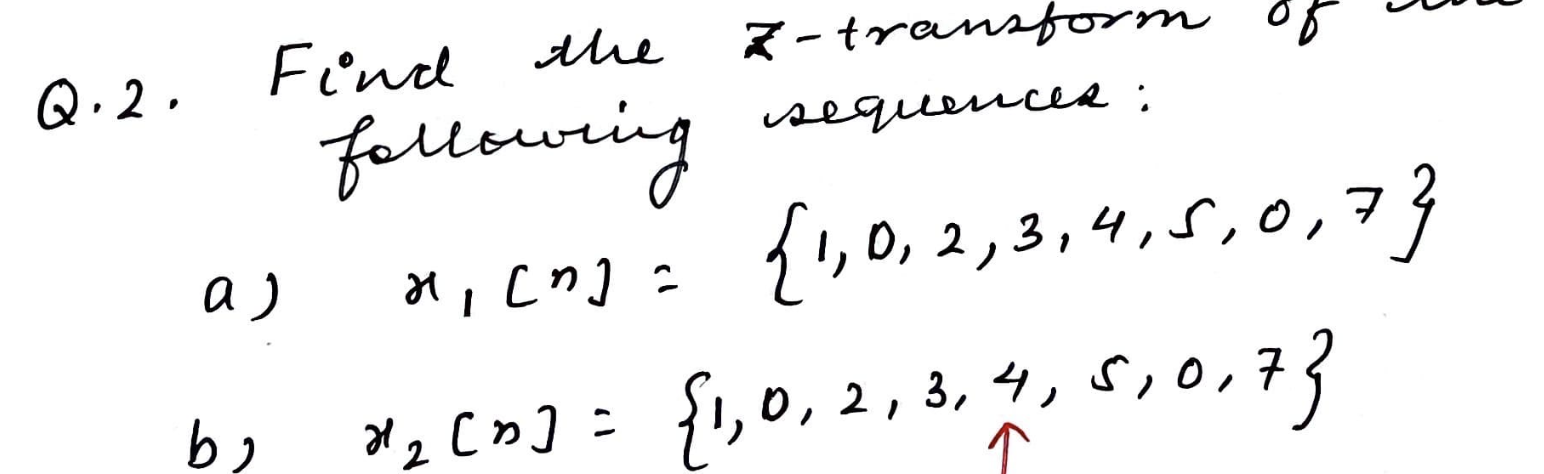 Q.2. Find the Z-transform of
following sequences:
a) x₁[n] = {1, 0, 2, 3, 4, 5, 0, 7}
b) x₂[n] = {1, 0, 2, 3, 4, 5, 0, 7}
↑